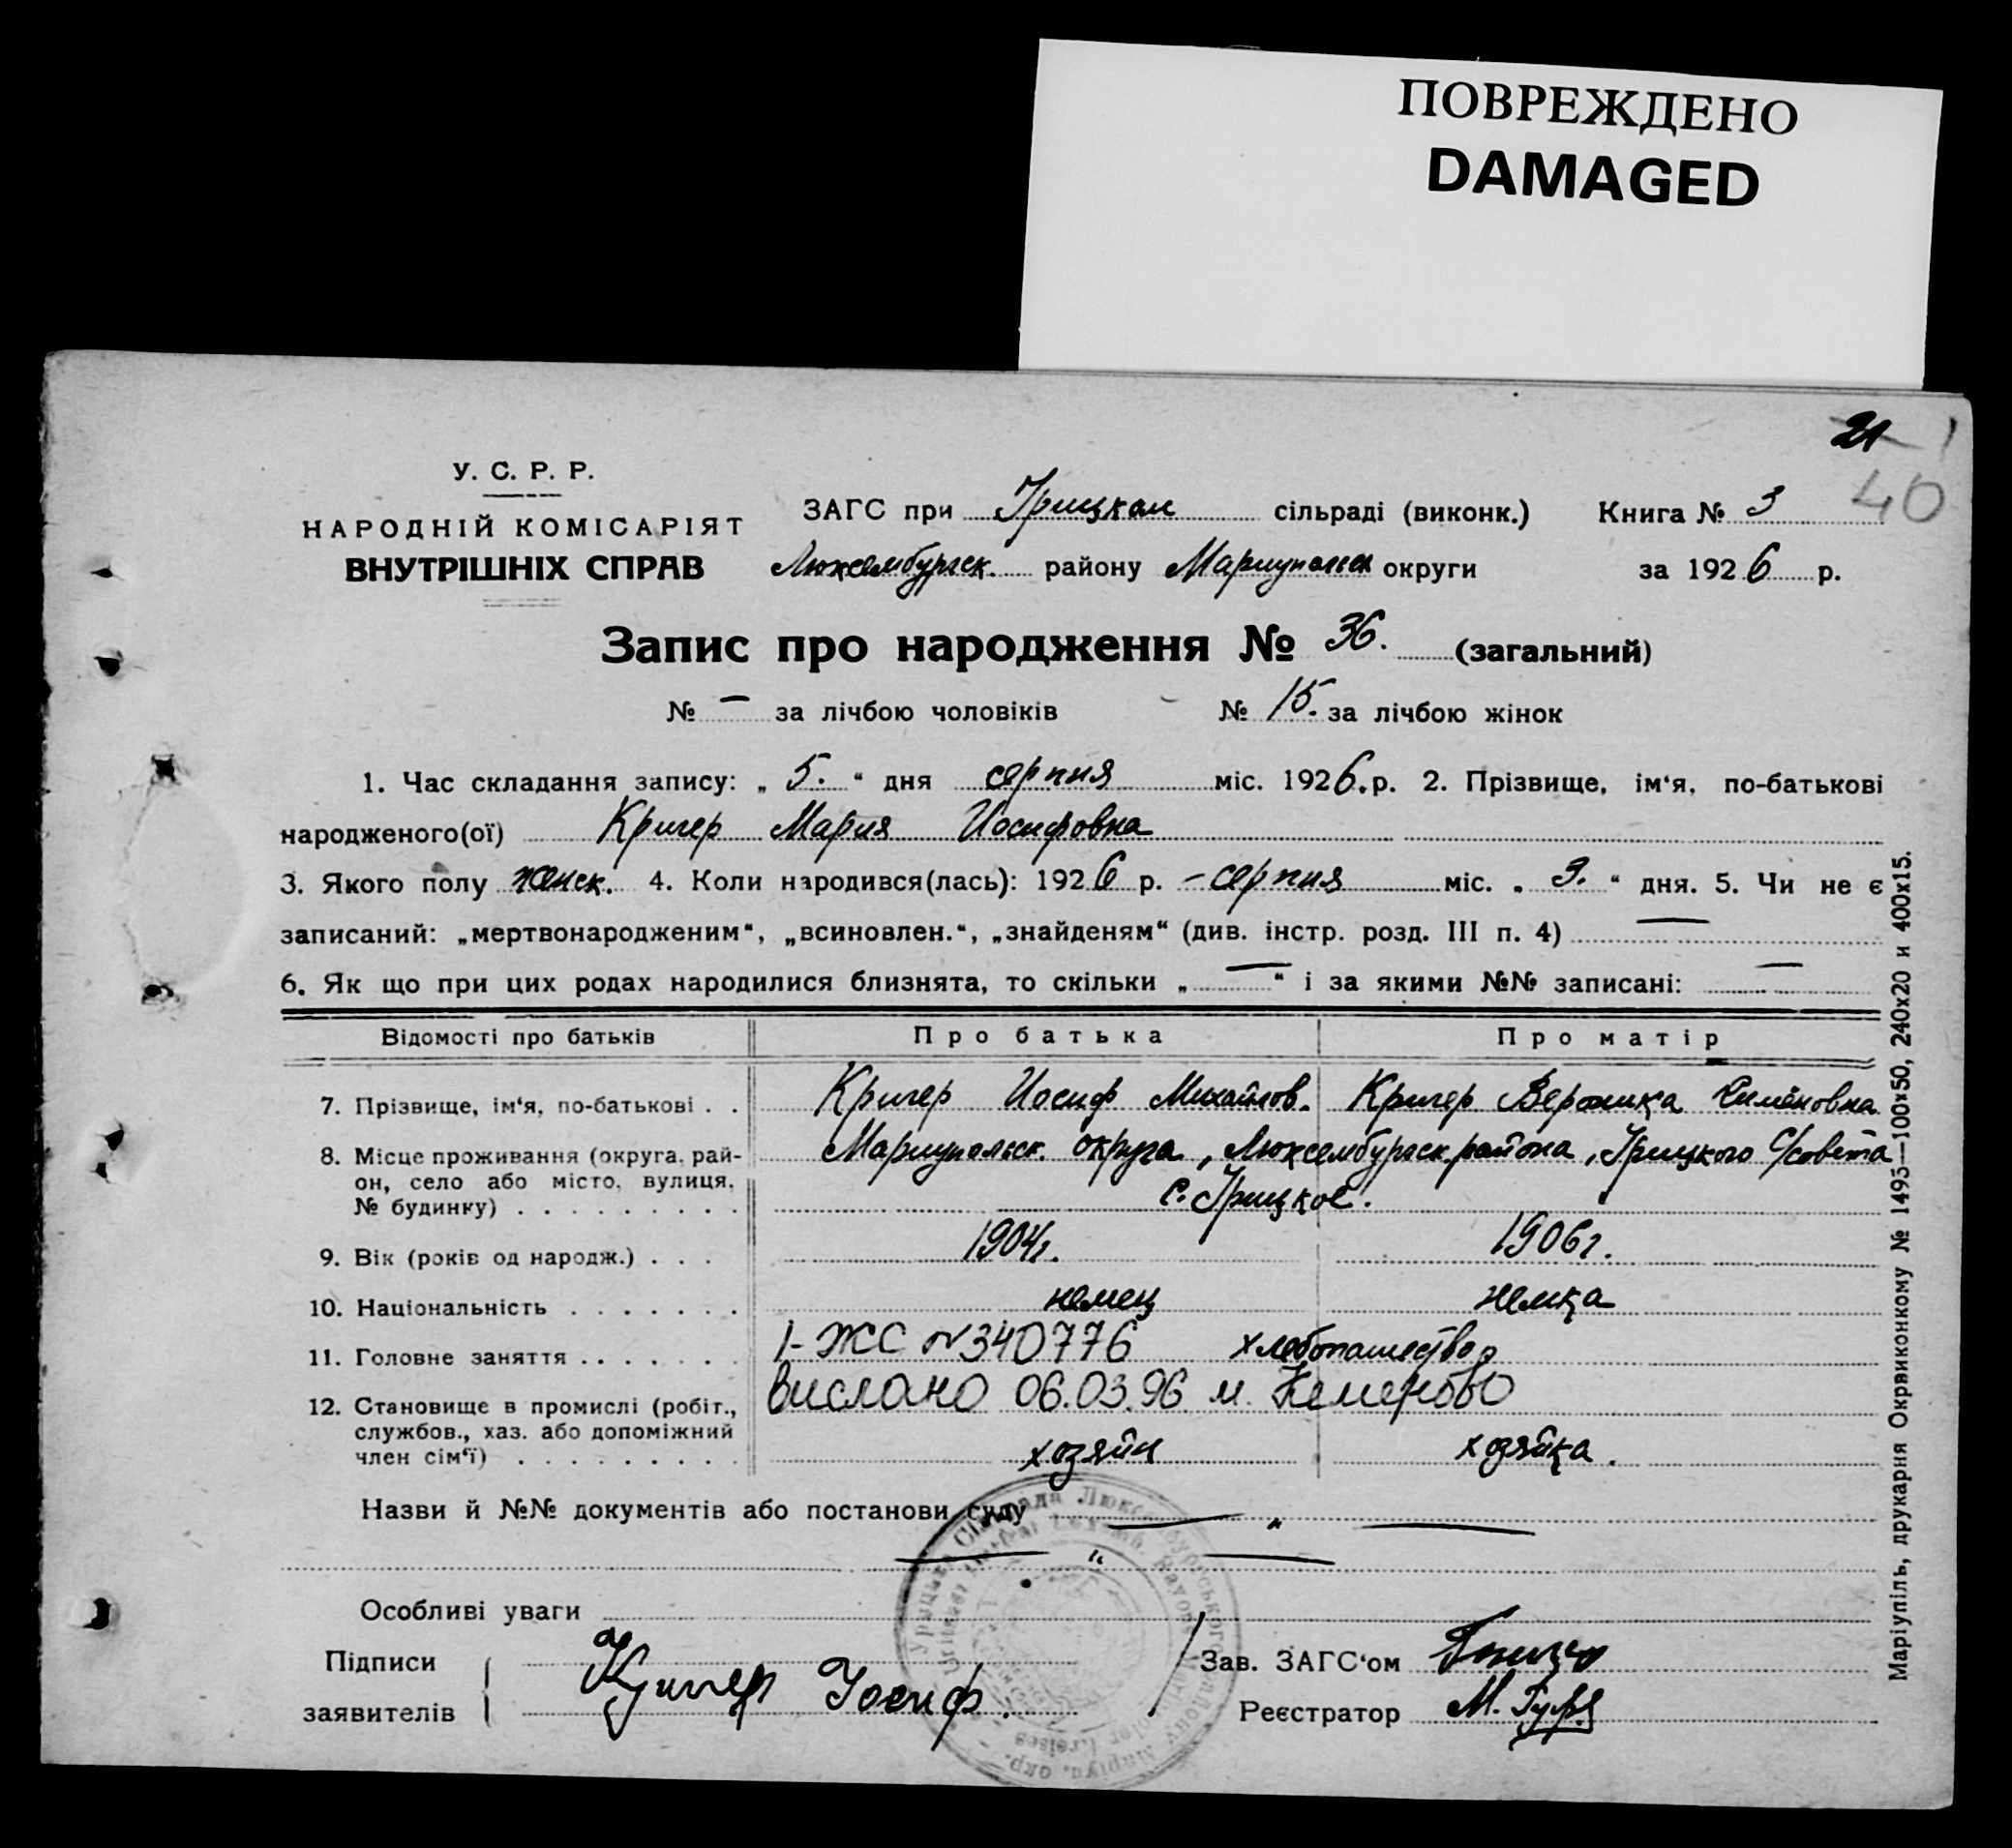 ПОВРЕЖДЕНО
DAMAGED
21
40
У. С. Р. Р.
НАРОДНІЙ КОМІСАРІЯТ
ВНУТРІШНІХ СПРАВ
ЗАГС при Урицком сільраді (виконк.) Книга № 3
Люксембургск. району Мариупольск округи за 1926 р.
Запис про народження № 36. (загальний)
№ — за лічбою чоловіків № 15. за лічбою жінок
1. Час складання запису: „ 5. “ дня серпня міс. 1926. р. 2. Прізвище, ім‘я, по-батькові
народженого(ої) Кригер Мария Иосифовна
3. Якого полу женск. 4. Коли народився(лась): 1926 р. – серпня міс. „ 3. “ дня. 5. Чи не є
записаний: „мертвонародженим“, „всиновлен.“, „знайденям“ (див. інстр. розд. III п. 4) —
6. Як що при цих родах народилися близнята, то скільки „ — “ і за якими №№ записані: —
Відомості про батьків Про батька Про матір
7. Прізвище, ім‘я, по-батькові . . Кригер Иосиф Михайлов. Кригер Вероника Симоновна
8. Місце проживання (округа, рай- Мариупольск. округа, Люксембургск. района, Урицкого С/совета
он, село або місто, вулиця, с. Урицкое.
№ будинку) . . . . . . . . .
9. Вік (років од народж.) . . . 1904г. 1906г.
10. Національність . . . . . . . немец немка
11. Головне заняття . . . . . . . I-ЖС №340776 хлебопашество
12. Становище в промислі (робіт., Вислано 06.03.96 м. Кемерово
службов., хаз. або допоміжний
член сім‘ї) . . . . . . . . . хозяин хозяйка.
Назви й №№ документів або постанови суду — „ —
— „ —
Особливі уваги
Підписи
заявителів
Кригер Иосиф.
Зав. ЗАГС‘ом
Реєстратор М.
Маріупіль, друкарня Окрвиконкому № 1493—100×50, 240×20 и 400×15.